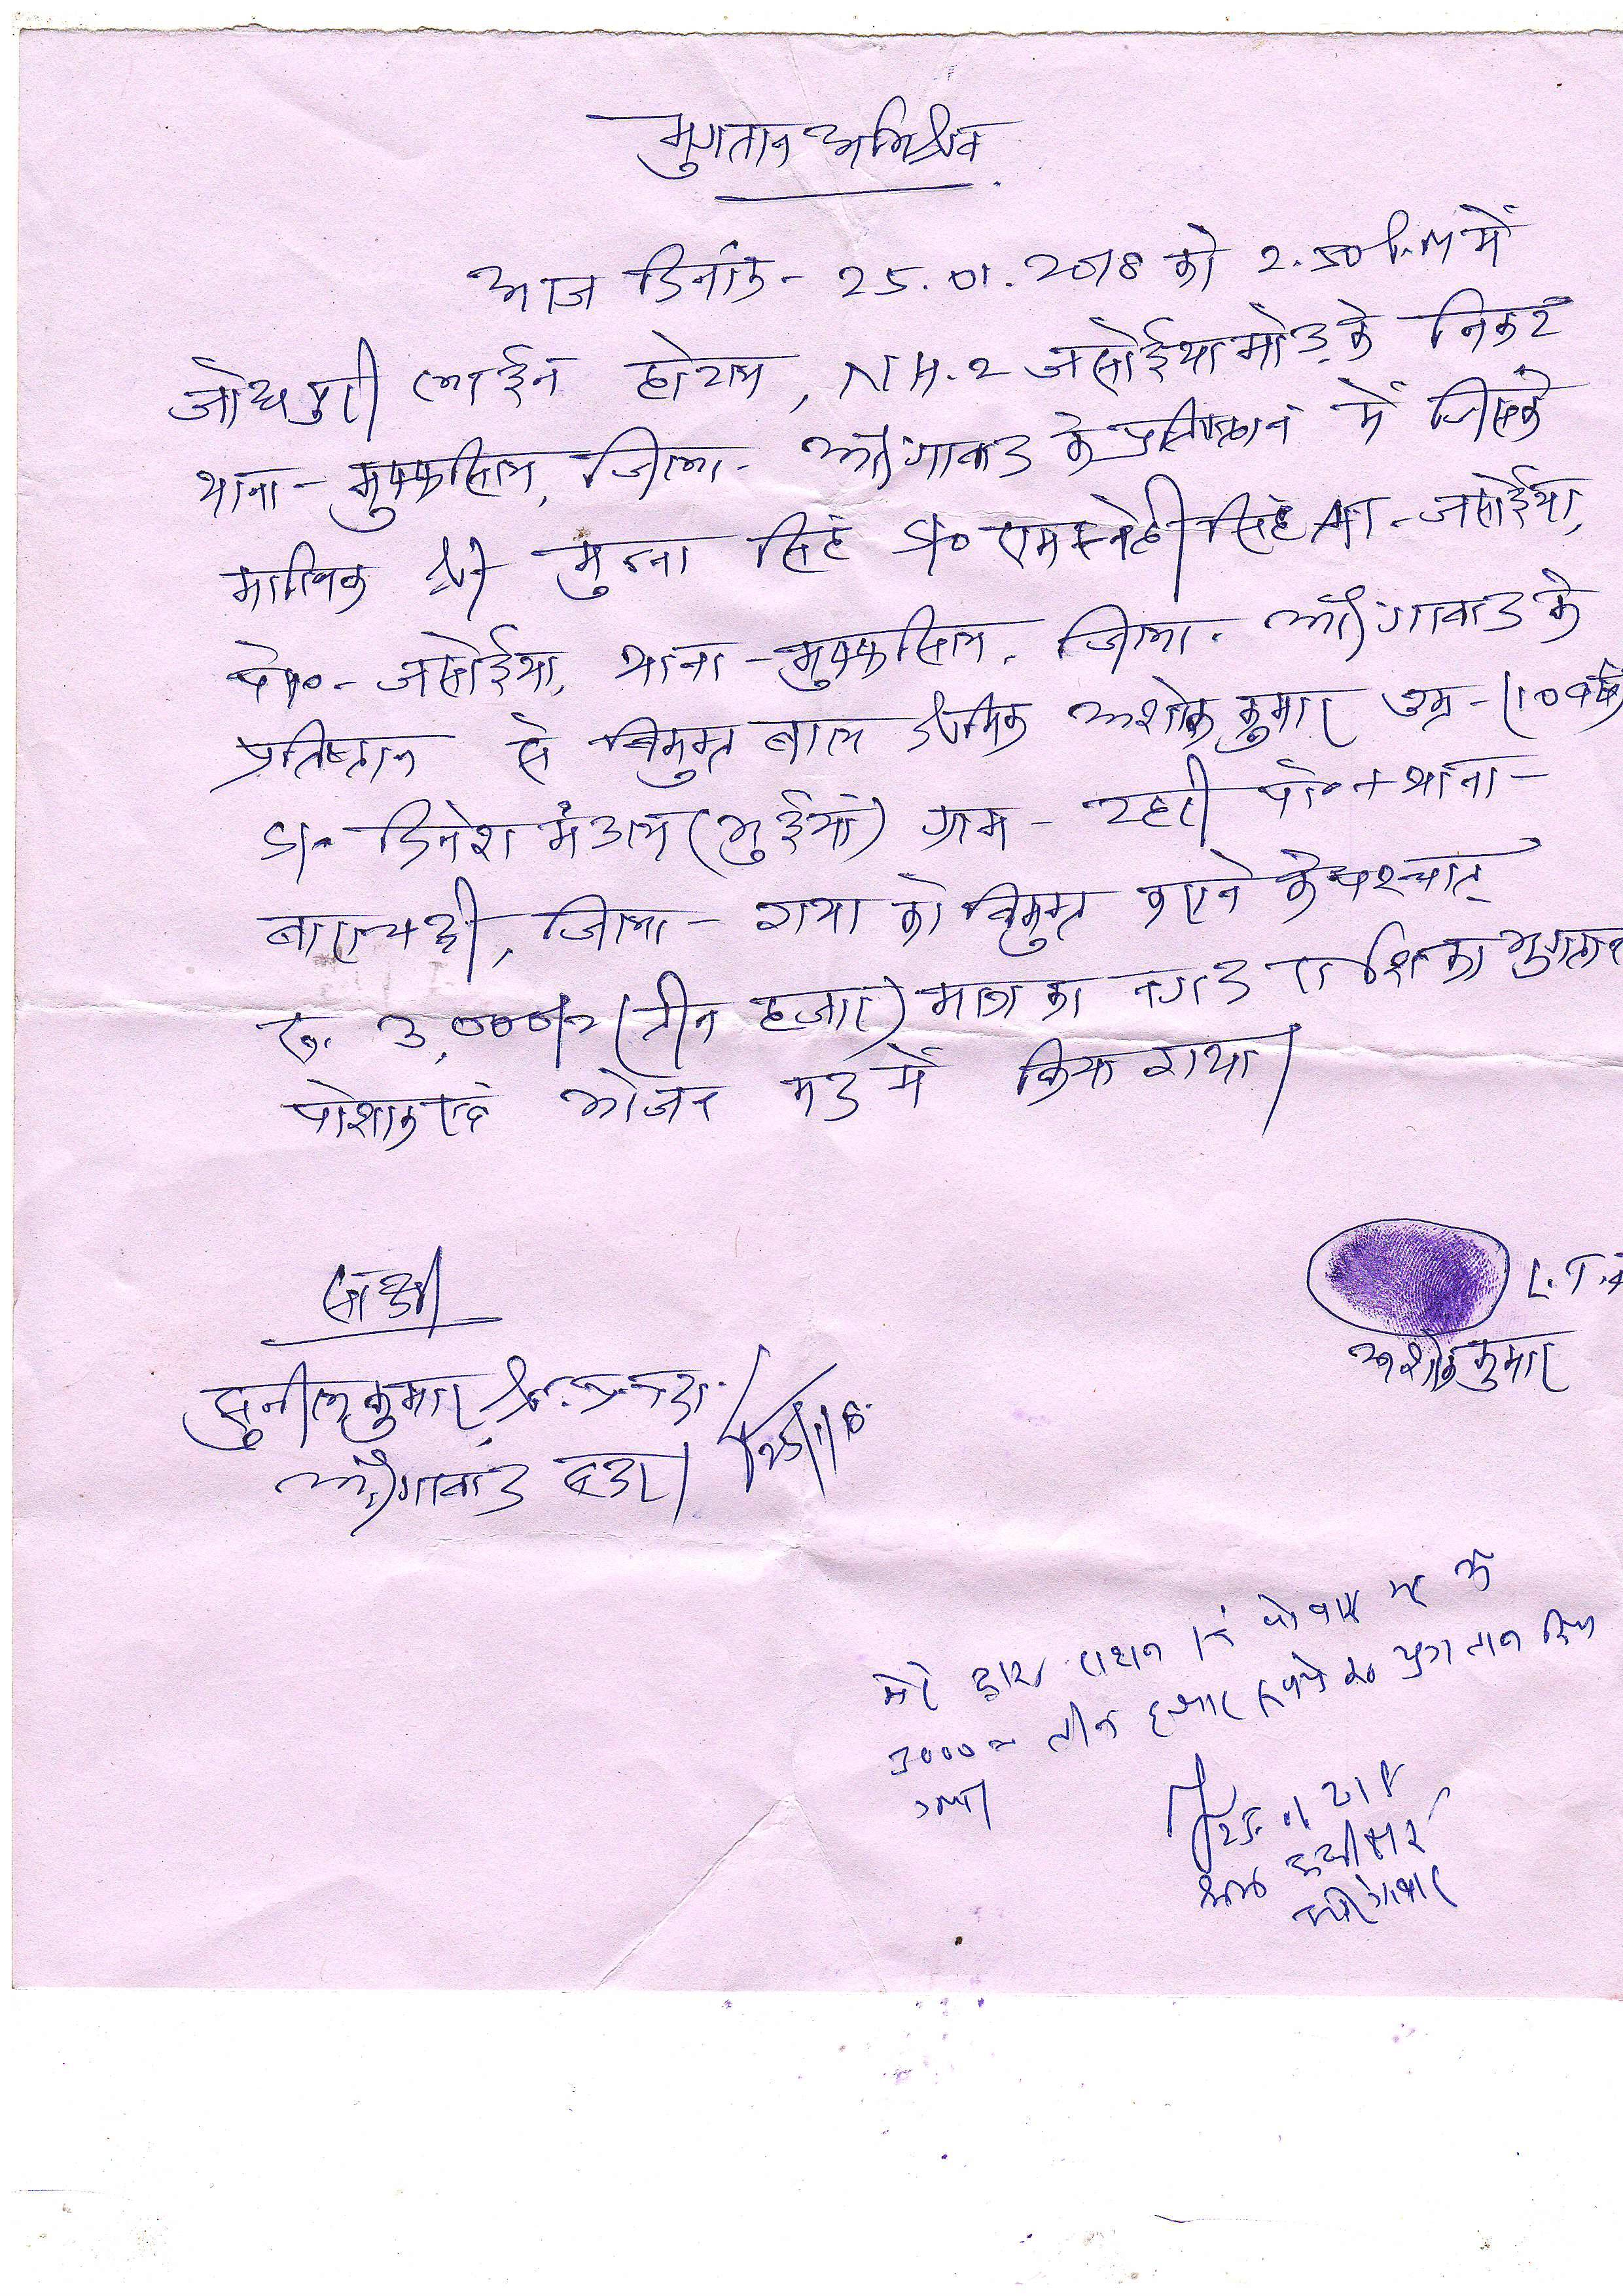 भुगतान अभिश्रव
आज दिनांक - 25.01.2018 को 2.50 P.M में
जोधपुरी लाईन होटल, NH.2 जसोईया मोड़ के निकट
थाना - मुफ्फसिल, जिला - औरंगाबाद के प्रतिष्ठान में जिसके
मालिक श्री मुन्ना सिंह S/० रामस्नेही सिंह ग्रा - जसोईया,
पो० - जसोईया, थाना - मुफ्फसिल, जिला - औरंगाबाद के
प्रतिष्ठान से विमुक्त बाल श्रमिक अशोक कुमार उम्र - (10 वर्ष)
S/० दिनेश मंडल (भुईयां) ग्राम - पो० + थाना -
बाराचट्टी, जिला - गया को विमुक्त कराने के पश्चात्
रू. 3,000/= (तीन हजार) मात्र का नगद राशि का भुगतान
पोशाक एवं भोजन मद में किया गया।
साक्षी
L.T.I
अशोक कुमार
सुनील कुमार, श्र.प्र.पदा.
औरंगाबाद सदर। 25/1/18.
मेरे द्वारा राशन एवं पोशाक मद के
3000 = तीन हजार रूपये का भुगतान किया
गया।
25.01.2018
श्रम अधीक्षक
औरंगाबाद